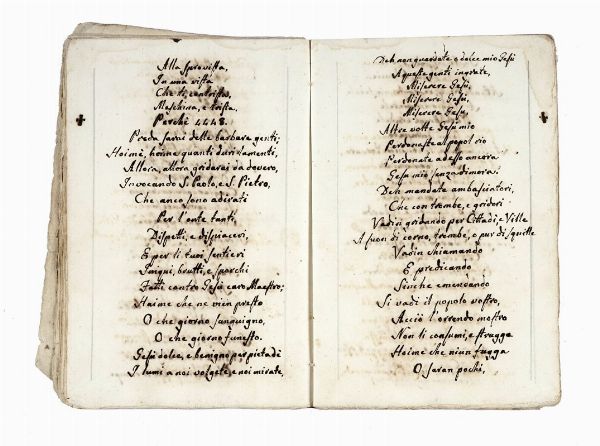 Alla sprovista,
In una vista
Che ti contrista,
Meschina, e trista,
Perchè 4448.
Preda sarai delle barbare genti;
Hoimè, hoime quanti duri lamenti,
Allora, allora gridarai da devero,
Invocando S. Paolo, e S. Pietro,
Che anco sono adirati
Per l'onte tanti,
Dispetti, e dispiaceri,
E per li tuoi sentieri
Pingui, brutti, e sporchi
Fatti contro Gesù caro Maestro;
Haime che ne vien presto
O che giorno sanguigno,
O che giorno funesto.
Gesù dolce, e benigno per pietadi
I lumi a noi volgete, e noi mirate,
Deh non guardate o dolce mio Gesù
A queste genti ingrate,
Miserere Gesù,
Miserere Gesù,
Miserere Gesù,
Altre volte Gesù mio
Perdonaste al popol rio
Perdonate adesso ancora
Gesù mio senza dimora.
Deh mandate ambasciatori,
Che con trombe, e gridori
Vadin gridando per Cittadi, e Ville
A suon di corno, trombe, o pur di squille
Vadin chiamando
E predicando
Sinche emendando
Si vadi il popolo vostro,
Acciò l'orrendo mostro
Non ti consumi, e strugga
Hoime che niun fugga
O saran pochi,